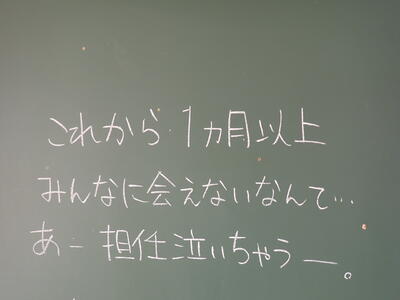 これから1ヵ月以上
みんなに会えないなんて…
あー担任泣いちゃうー。